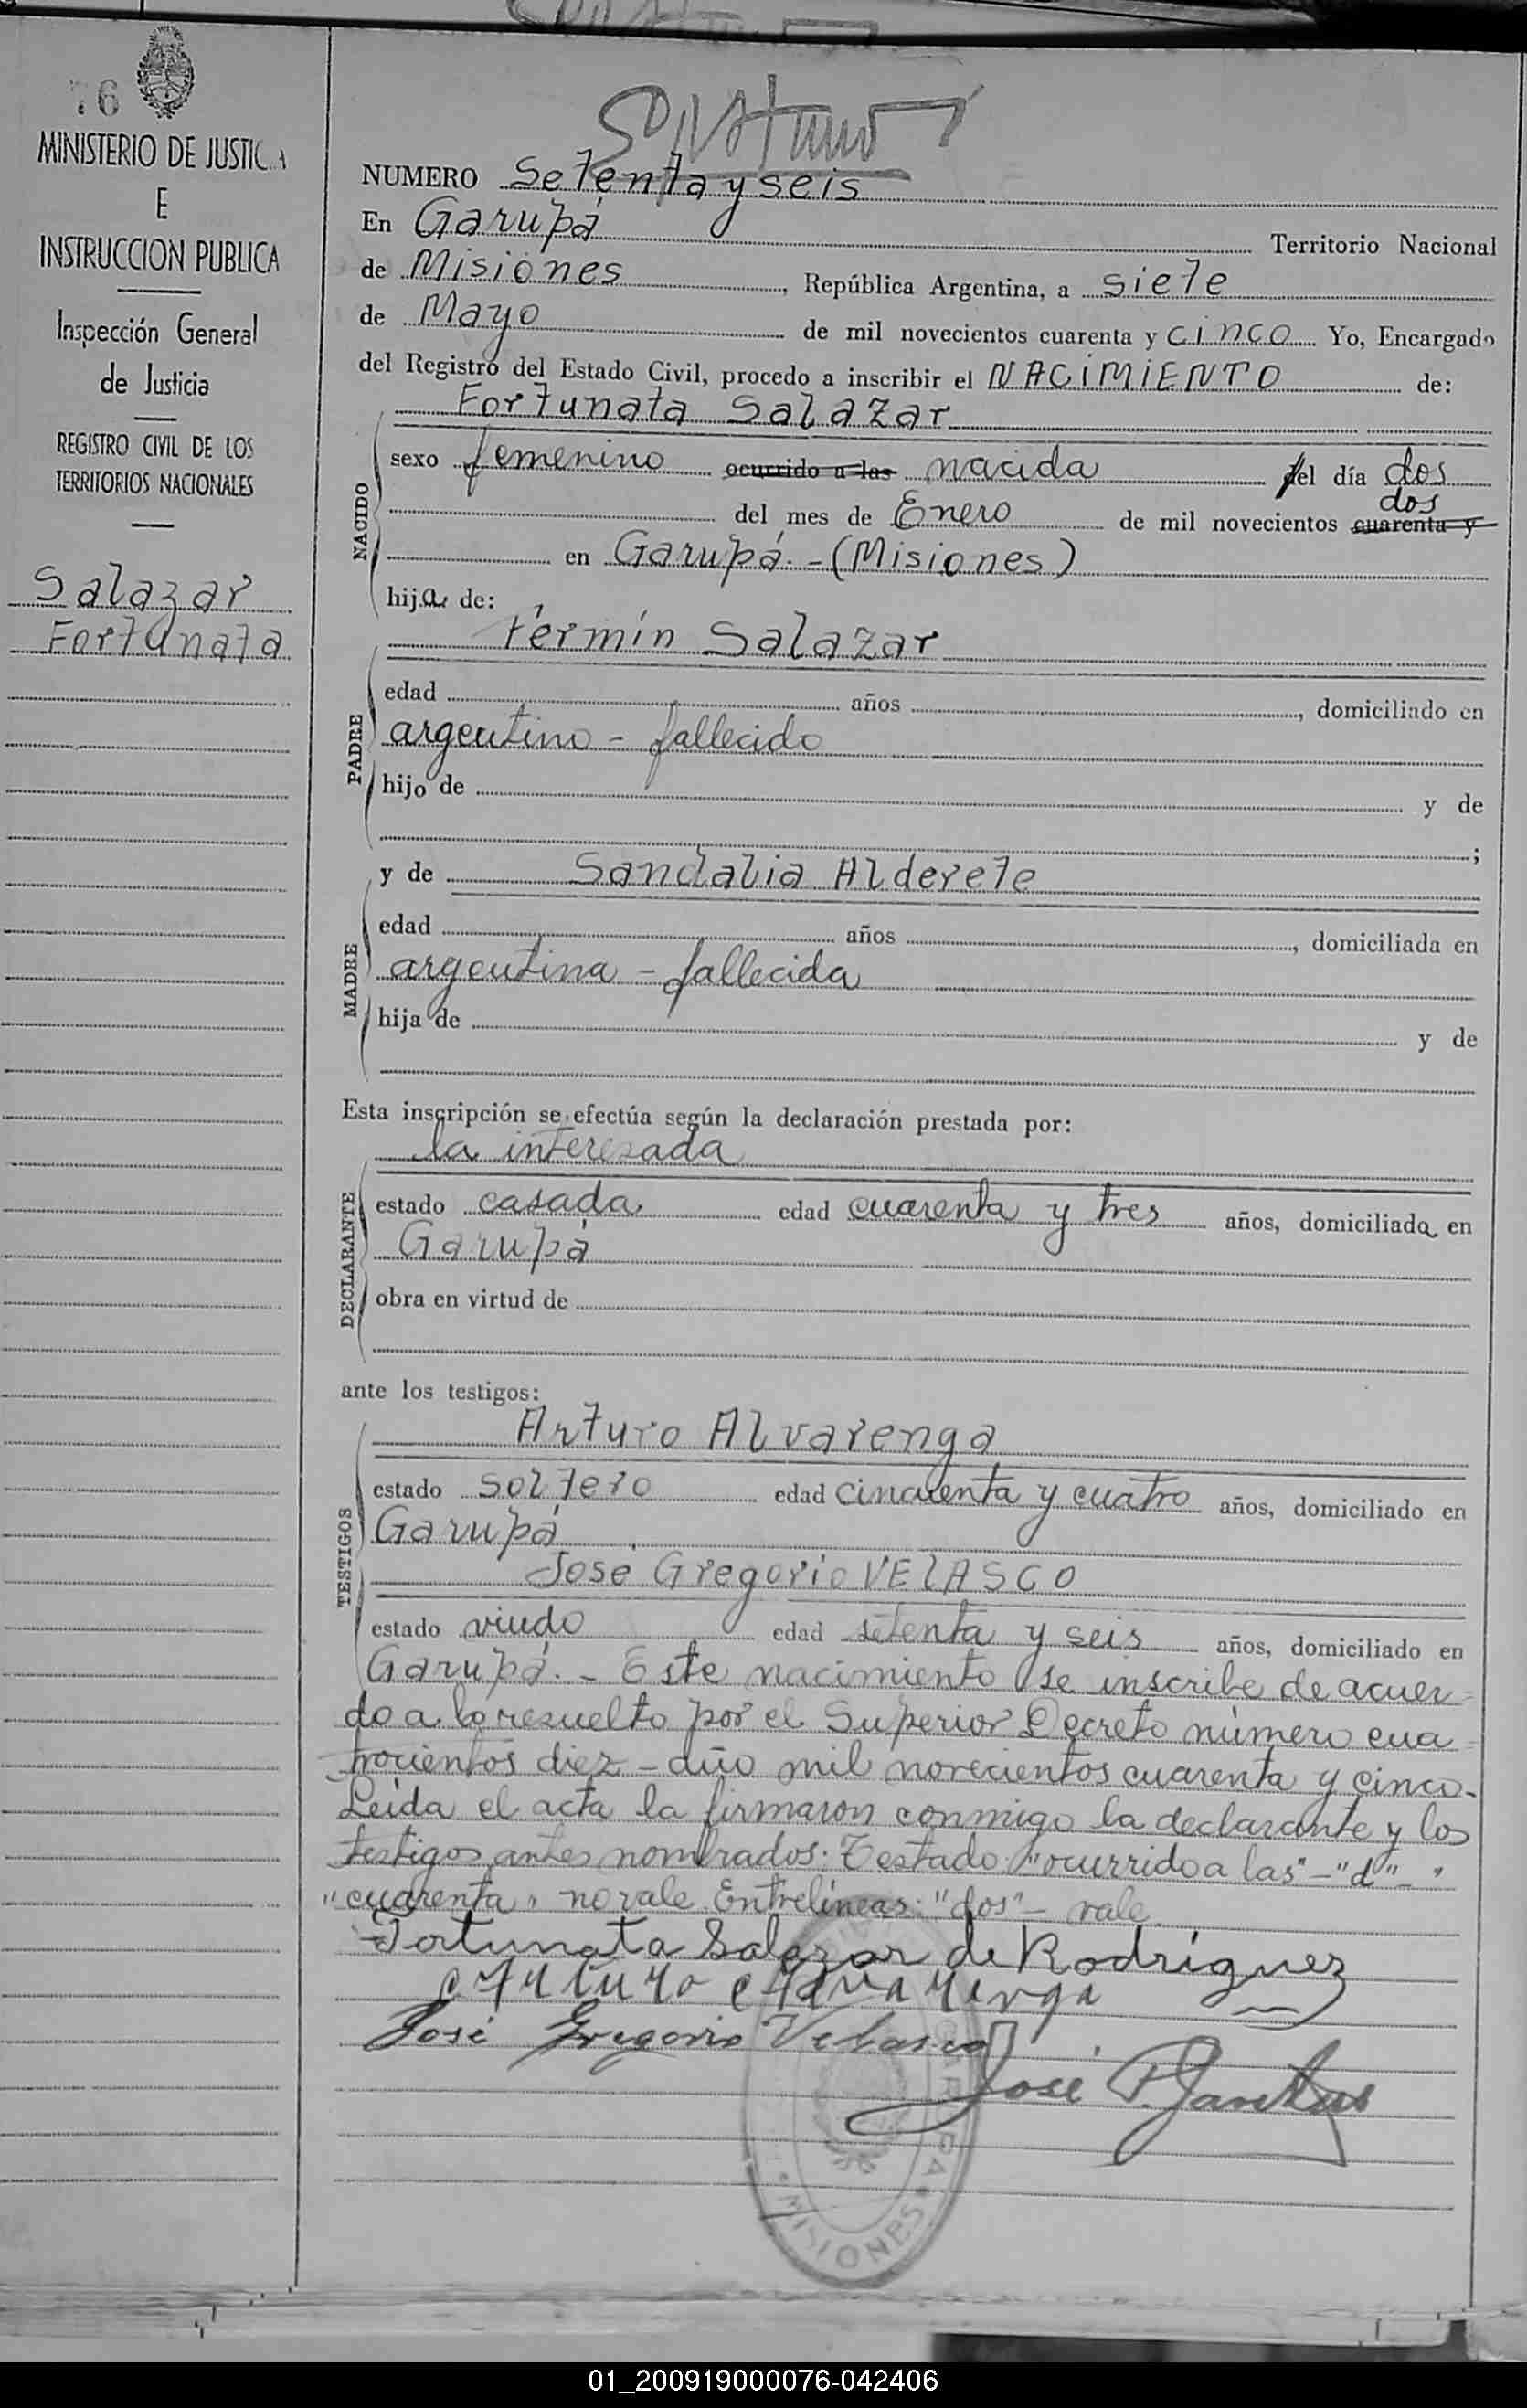 76
MINISTERIO DE JUSTICIA
E
INSTRUCCION PUBLICA
Inspección General
de Justicia
REGISTRO CIVIL DE LOS
TERRITORIOS NACIONALES
Salazar
Fortunata
NUMERO Setenta y seis
En Garupá Territorio Nacional
de Misiones, República Argentina, a siete
de Mayo de mil novecientos cuarenta y cinco Yo, Encargado
del Registro del Estado Civil, procedo a inscribir el NACIMIENTO de:
Fortunata Salazar
NACIDO
sexo femenino ocurrido a las nacida del día dos
dos
del mes de Enero de mil novecientos cuarenta y
en Garupá.-(Misiones)
hija de:
Fermín Salazar
PADRE
edad años, domiciliado en
argentino - fallecido
hijo de y de
;
y de Sandalia Alderete
MADRE
edad años, domiciliada en
argentina - fallecida
hija de y de
Esta inscripción se efectúa según la declaración prestada por:
la interesada
DECLARANTE
estado casada edad cuarenta y tres años, domiciliada en
Garupá
obra en virtud de
ante los testigos:
Arturo Alvarenga
TESTIGOS
estado soltero edad cincuenta y cuatro años, domiciliado en
Garupá
José Gregorio VELASCO
estado viudo edad setenta y seis años, domiciliado en
Garupá.- Este nacimiento se inscribe de acuer=
do a lo resuelto por el Superior Decreto número cua=
trocientos diez - año mil novecientos cuarenta y cinco-
Leída el acta la firmaron conmigo la declarante y los
testigos antes nombrados. Testado: "ocurrido a las"-"d"-"
"cuarenta" no vale. Entrelíneas: "dos"- vale.
Fortunata Salazar de Rodríguez
Arturo Alvarenga
José Gregorio Velasco
José P.
MISIONES
01_200919000076-042406